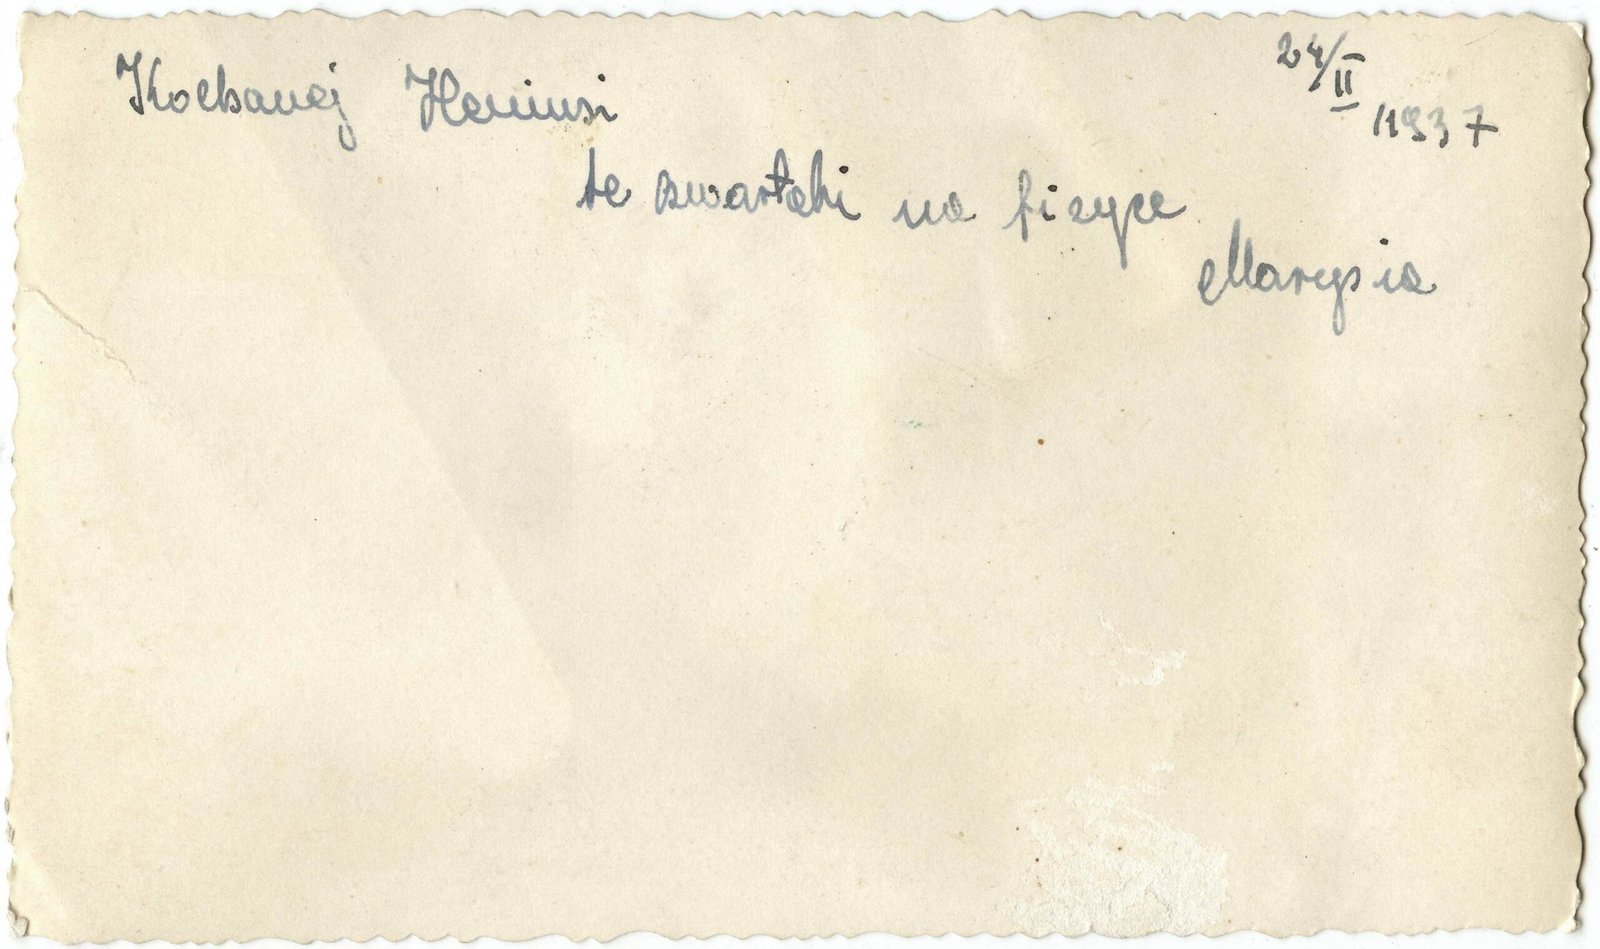 24/II
1937
Kochanej Heniusi
te czwartaki na fizyce
Marysia